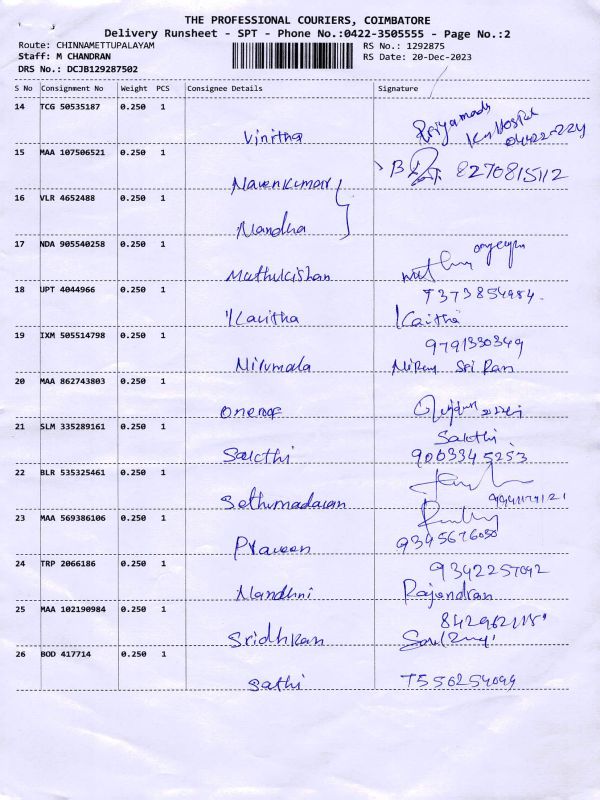 THE PROFESSIONAL COURIERS, COIMBATORE
Delivery Runsheet - SPT - Phone No.:0422-3505555 - Page No.:2
Route: CHINNAMETTUPALAYAM RS No.: 1292875
Staff: M CHANDRAN RS Date: 20-Dec-2023
DRS No.: DCJB129287502
S No Consignment No Weight PCS Consignee Details Signature
14 TCG 50535187 0.250 1
Vinitha
15 MAA 107506521 0.250 1
Naven kumar 8270815112
16 VLR 4652488 0.250 1
Nandha
17 NDA 905540258 0.250 1
Muthukishan
18 UPT 4044966 0.250 1 7373854984
Kavitha Kaitha
19 IXM 505514798 0.250 1 9791330349
Nirumala Sri Ran
20 MAA 862743803 0.250 1
21 SLM 335289161 0.250 1 Sakthi
Sakthi 9003345253
22 BLR 535325461 0.250 1
Sethumadavan
23 MAA 569386106 0.250 1
Praveen 9345676030
24 TRP 2066186 0.250 1 9342257092
Nandhni Rajendran
25 MAA 102190984 0.250 1
Sridhran
26 BOD 417714 0.250 1
Sathi 7556254099